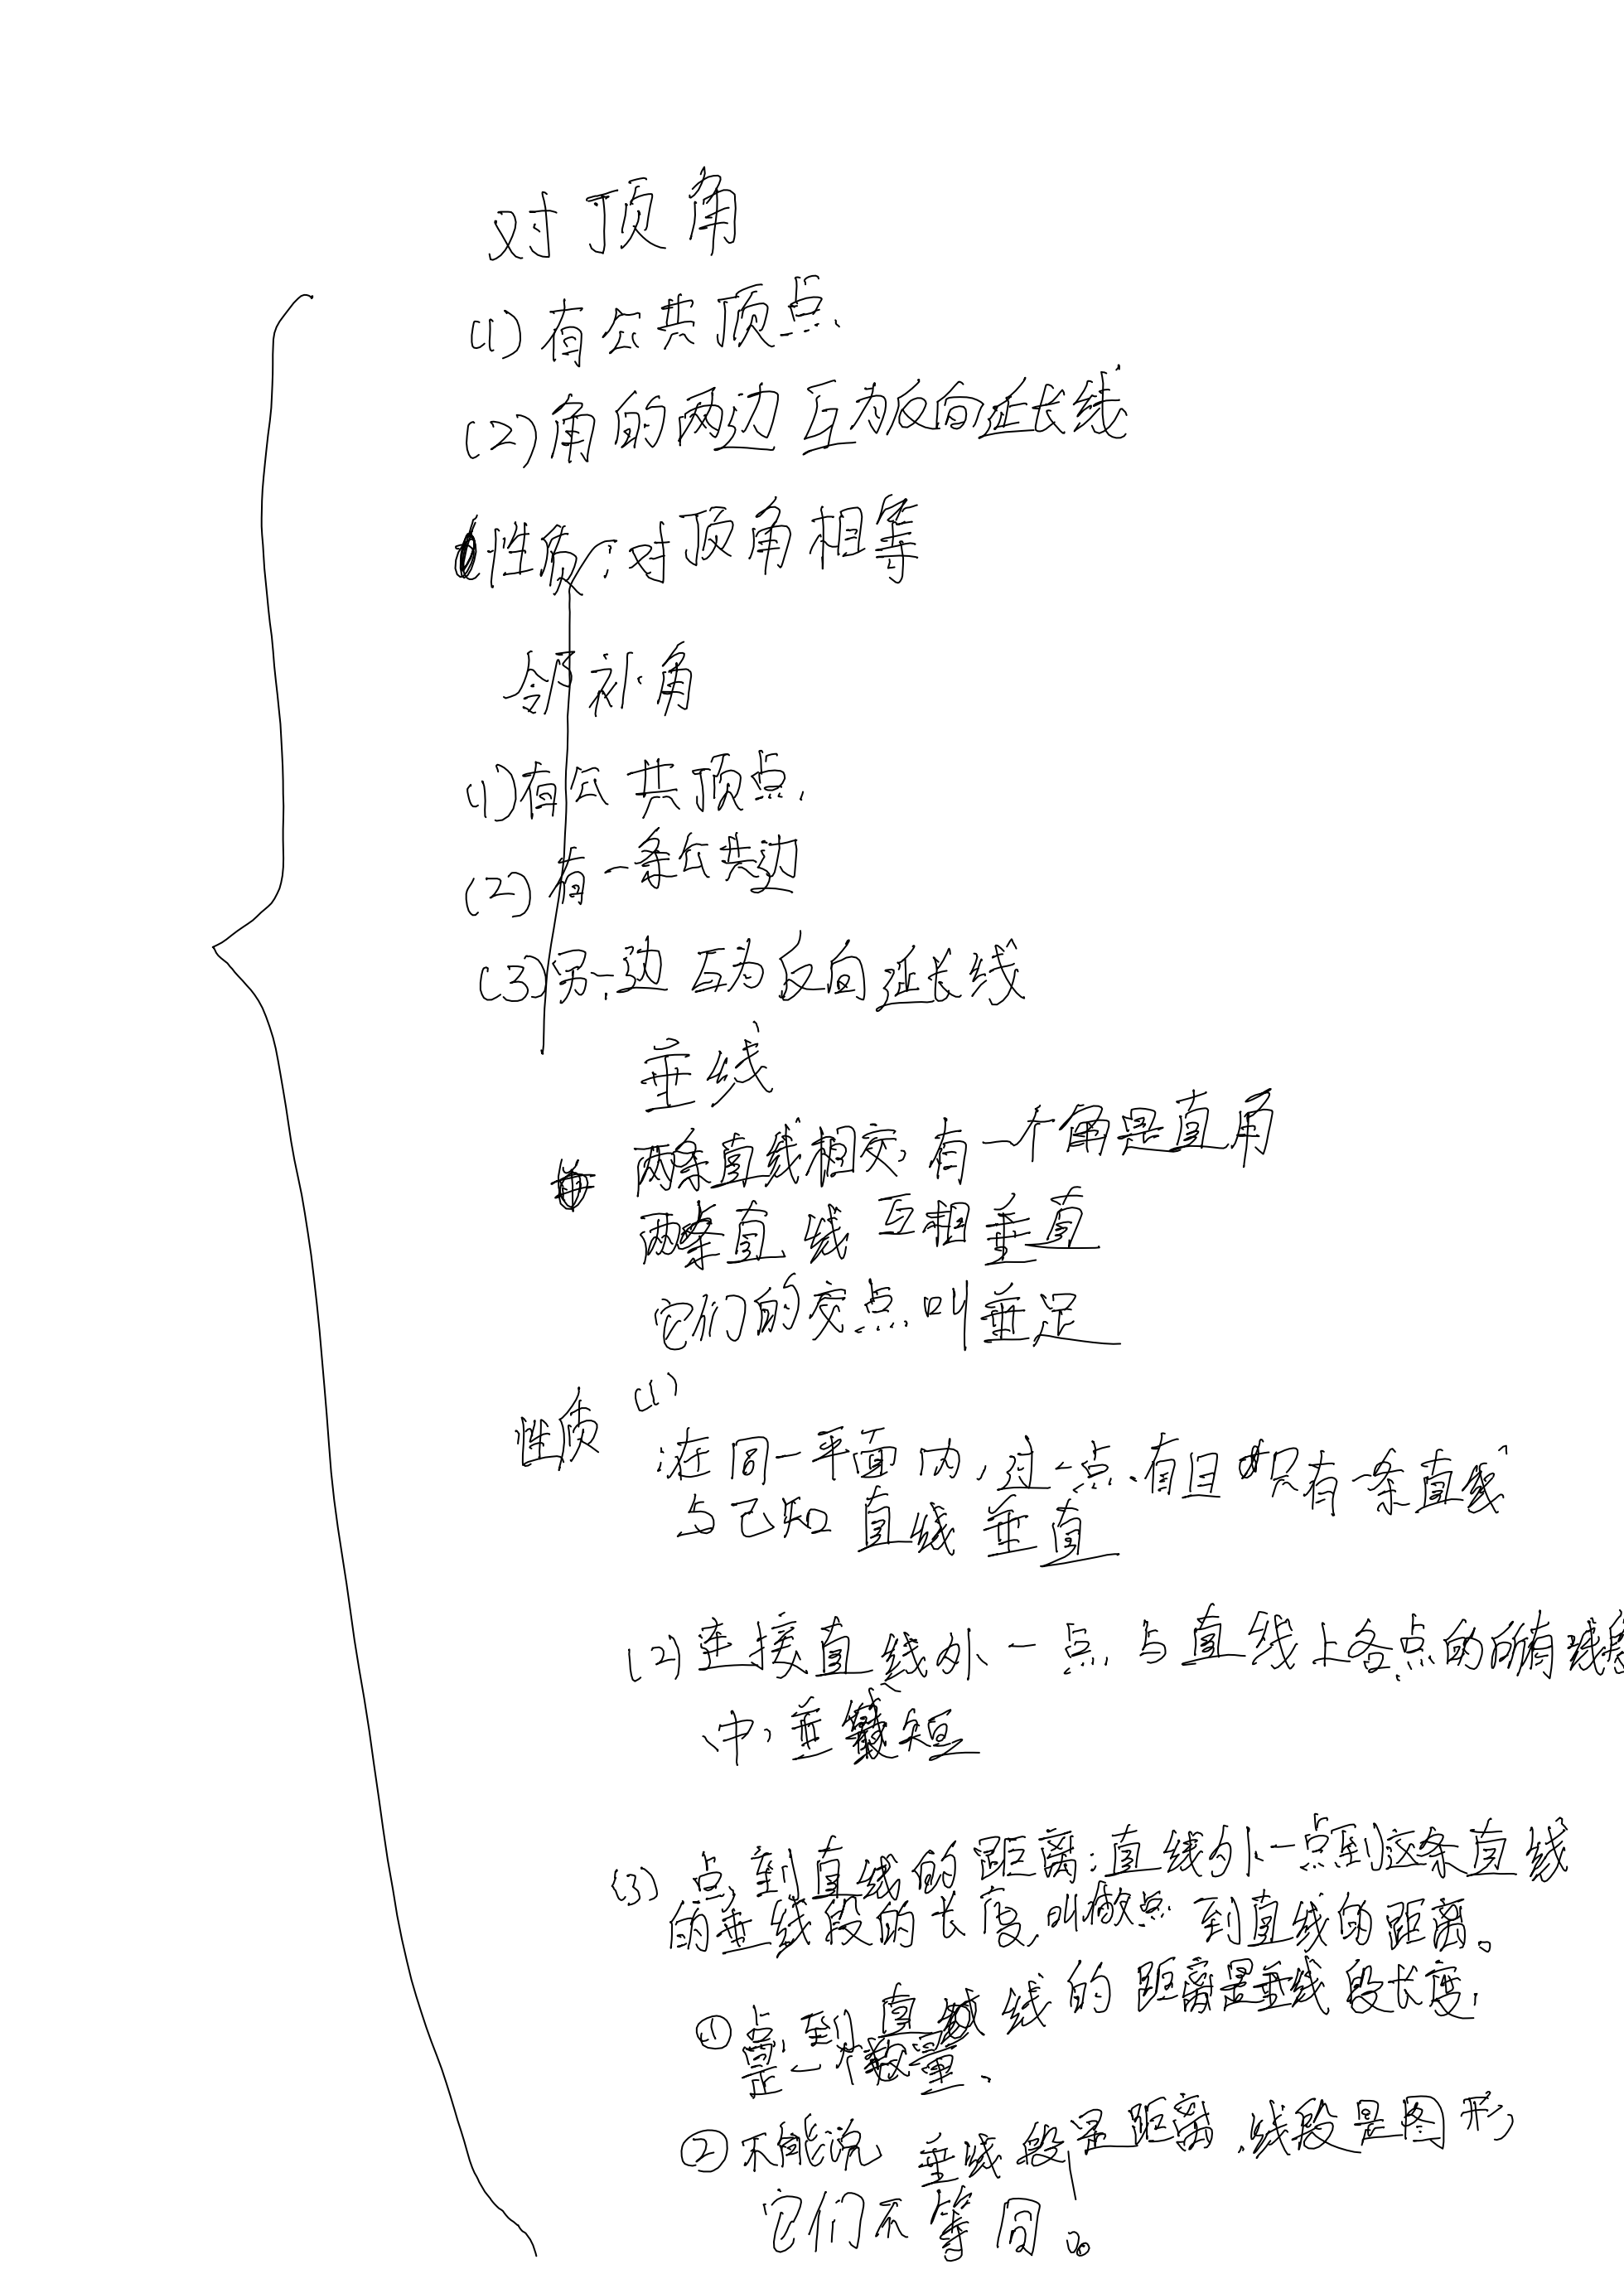 对顶角
(1)有公共顶点
(2)角的两边互为反向延长线
性质:对顶角相等
邻补角
(1)有公共顶点
(2)有一条公共边
(3)另一边互为反向延长线
垂线
两条直线相交,有一个角是直角
两条直线互相垂直
它们的交点叫垂足
(1)
性质:在同一平面内,过一点有且只有一条直线
与已知直线垂直
(2)连接直线外一点与直线上各点的所有线段
中,垂线最短
(3)点到直线的距离:直线外一点到这条直线
的垂线段的长度,叫做点到直线的距离。
①点到直线的距离是垂线段长度,
是一个数量、
②不能说垂线段是距离,线段是图形,
它们不等同。